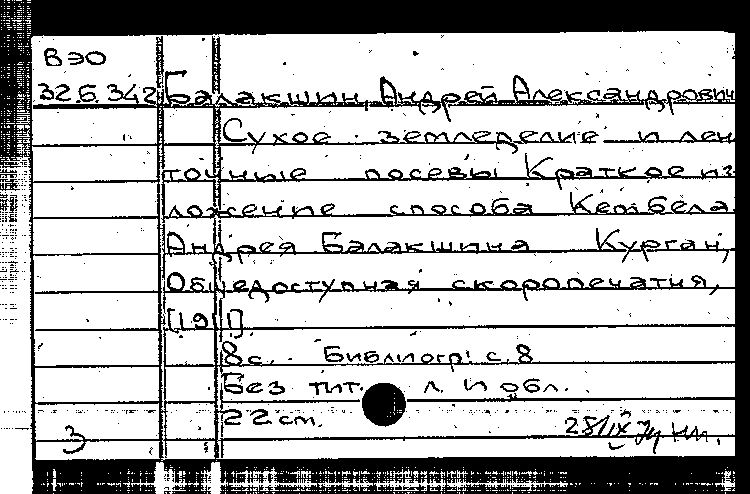 ВЭО
32.Б.342 Балакшин, Андрей Александрович
Сухое земледелие и лен
точные посевы Краткое из
ложение способа Кембела
Андрея Балакшина Курган,
Общедоступная скоропечатня,
[1911]
8с. Библиогр: с. 8
Без тит. л. и обл.
22 см.
3 28/IX